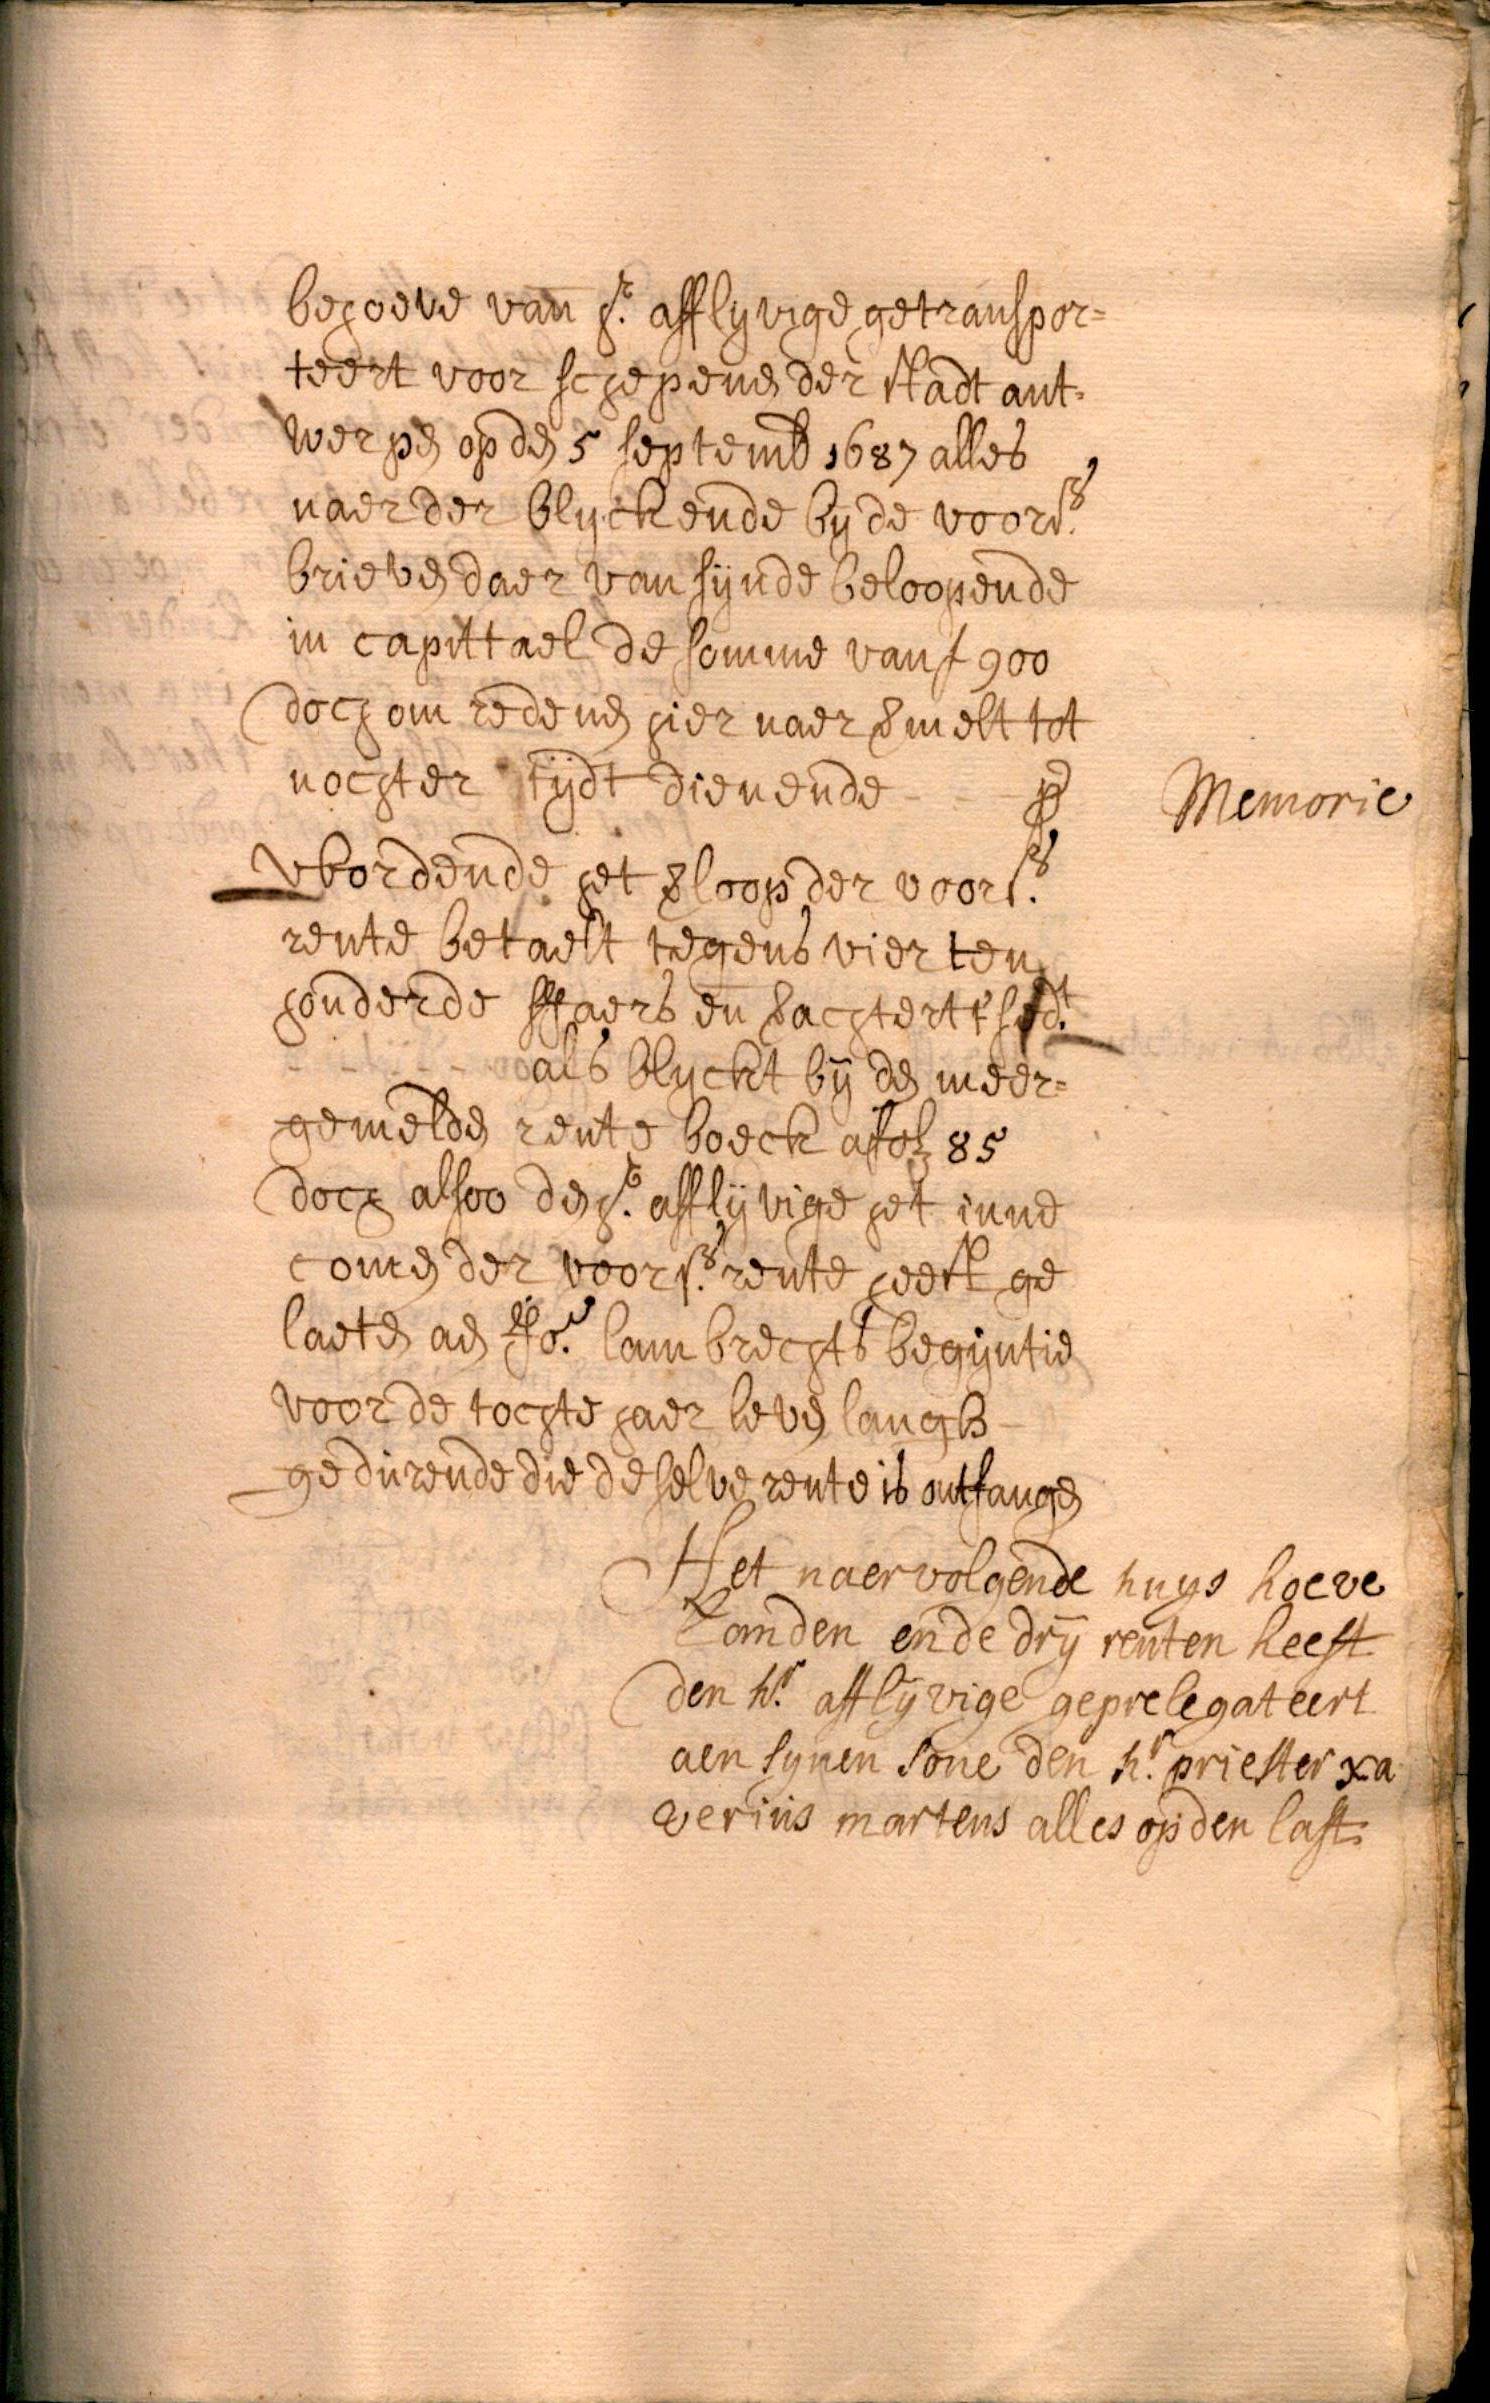 behoeve van hr. afflyvige getranspor=
teert voor schepenen der stadt ant=
werpen op den 5 septemb 1687 alles
naerder blyckende by de voors.
brieven daer van synde beloopende
in capittael de somme van f 900
doch om redenen hier naer vermelt tot
nochter tydt dienende - - - p Memorie
Wordende het verloop der voors.
rente betaelt tegens vier ten
honderde sjaers en verachtert t'sed.t
als blyckt by den meer=
gemelden rente boeck a fol 85
doch alsoo den hr. afflyvige het inne
comen der voors. rente heeft ge
laeten aen Jo.e lambrechts begyntie
voor de tochte haer leven langh
gedurende die de selve rente is ontfangen
Het naervolgende huys hoeve
Landen ende dry renten heeft
den hr. afflyvige geprelegateert
aen synen sone den hr. priester xa
verius martens alles op den last